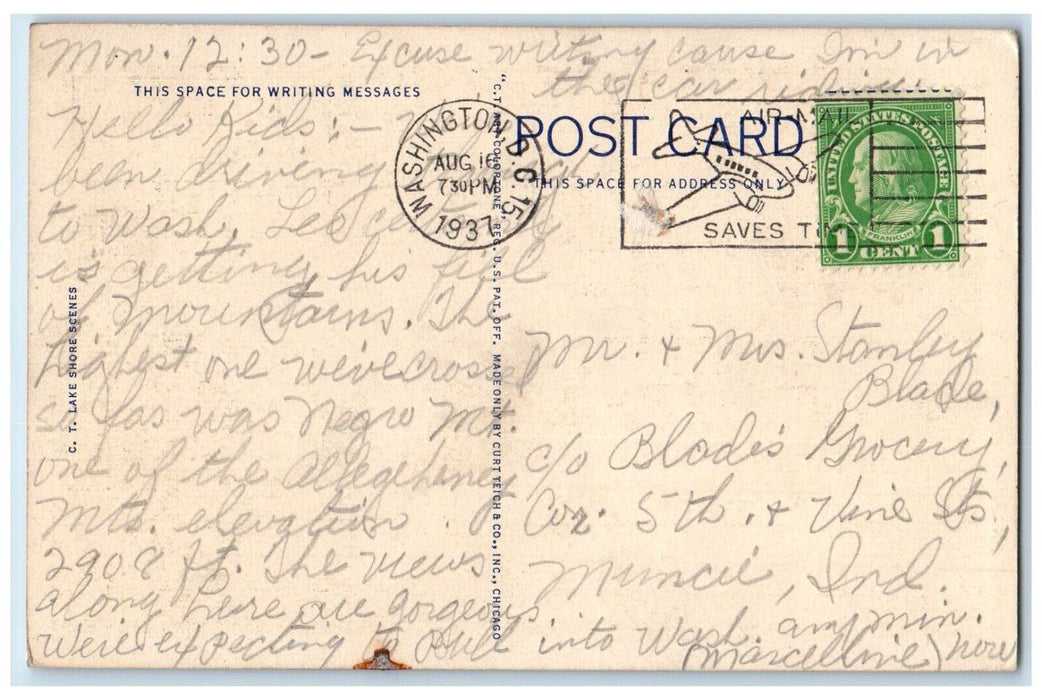 Mon. 12:30 - Excuse writing cause I'm in
the car riding.
THIS SPACE FOR WRITING MESSAGES
Hello Kids: -
been driving
to Wash. Leo
is getting his fill
of Mountains. The
highest one we've cross
so far was Negro Mt.
one of the Allegheney
Mts. elevation
2908 ft. The views
along here are gorgeous
We're expecting to pull into Wash. any min.
(Marcelline) now
C. T. LAKE SHORE SCENES
"C.T. COLORTONE" REG. U.S. PAT. OFF. MADE ONLY BY CURT TEICH & CO., INC., CHICAGO
POST CARD
THIS SPACE FOR ADDRESS ONLY
WASHINGTON, D.C. 15
AUG 16
730PM
1937
AIR-MAIL
SAVES TIME
UNITED STATES POSTAGE
FRANKLIN
1 CENT 1
Mr. + Mrs. Stanley
Blade,
c/o Blade's Grocery,
Cor. 5th. + Vine Sts,
Muncie, Ind.